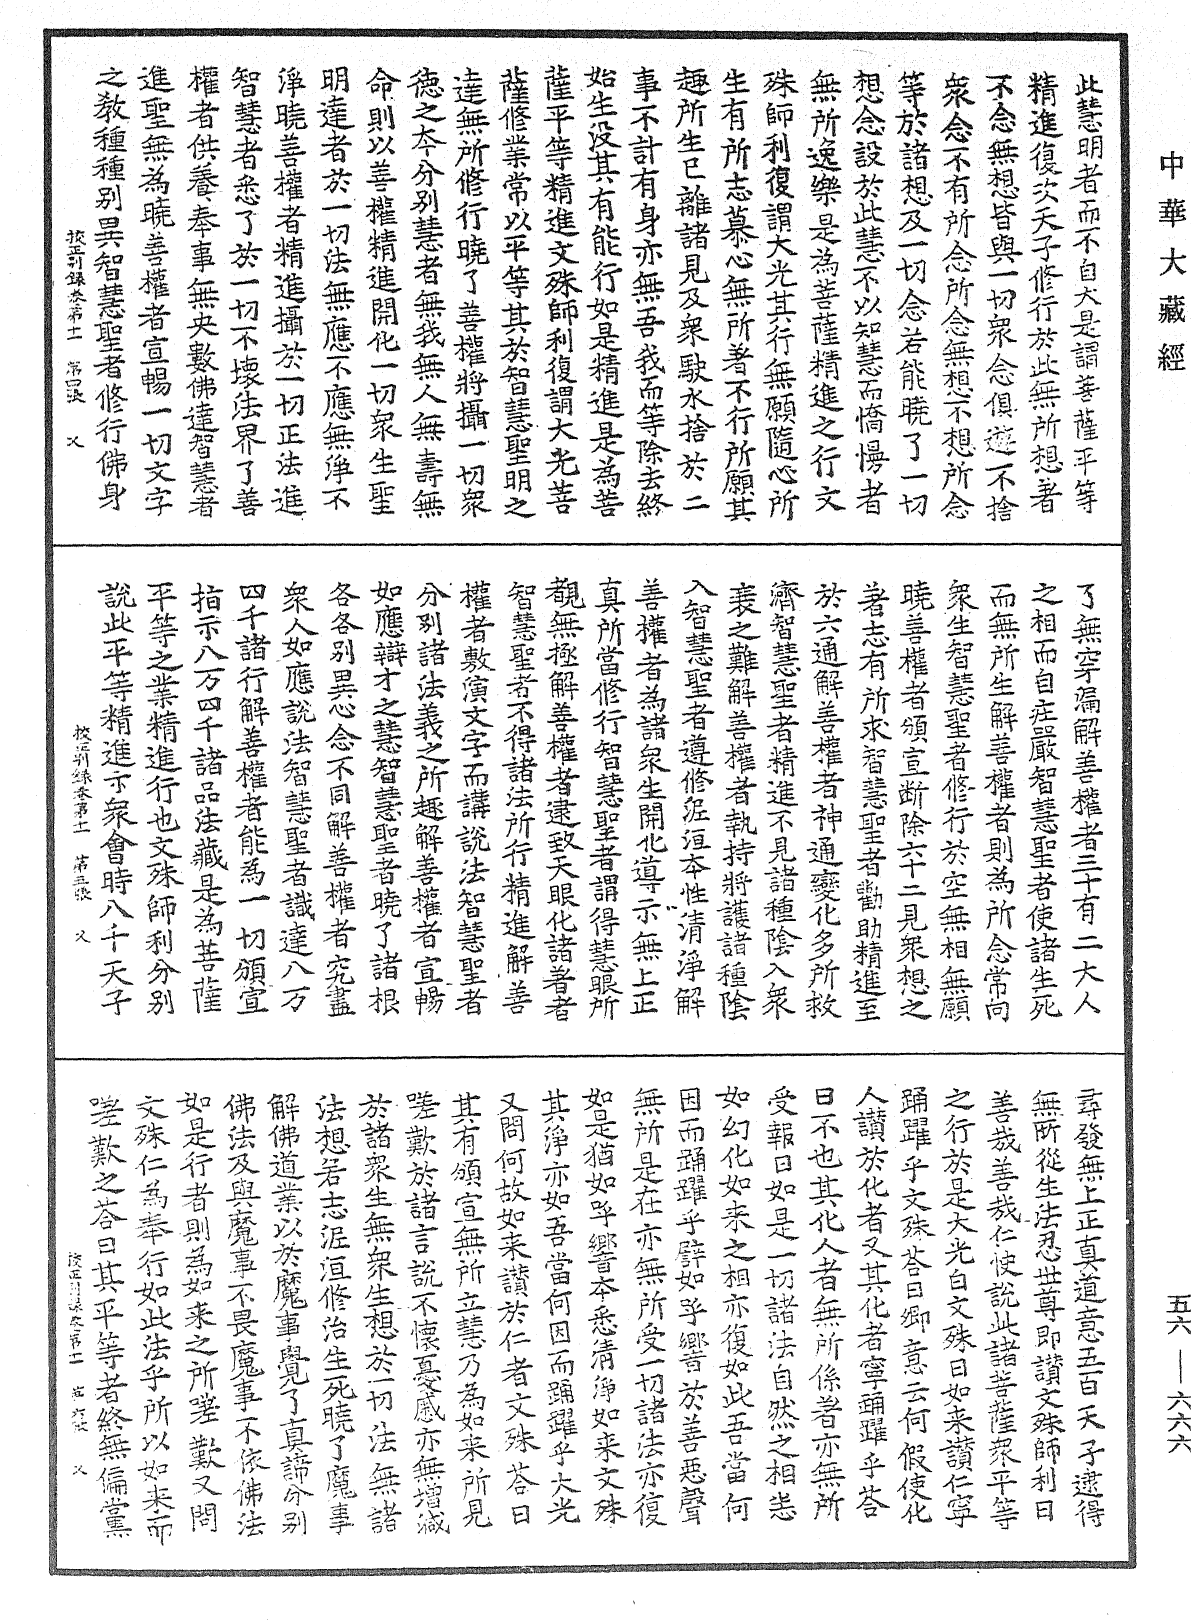 中華大藏經
此慧明者而不自大是謂菩薩平等
精進復次天子修行於此無所想著
不念無想皆與一切衆念俱遊不捨
衆念不有所念所念無想不想所念
等於諸想及一切念若能曉了一切
想念設於此慧不以智慧而憍慢者
無所逸樂是為菩薩精進之行文
殊師利復謂大光其行無願隨心所
生有所志慕心無所著不行所願其
趣所生已離諸見及衆駛水捨於二
事不計有身亦無吾我而等除去終
始生沒其有能行如是精進是為菩
薩平等精進文殊師利復謂大光菩
薩修業常以平等其於智慧聖明之
達無所修行曉了善權將攝一切衆
德之本分別慧者無我無人無壽無
命則以善權精進開化一切衆生聖
明達者於一切法無應不應無淨不
淨曉善權者精進攝於一切正法進
智慧者悉了於一切不壞法界了善
權者供養奉事無央數佛達智慧者
進聖無為曉善權者宣暢一切文字
之教種種別異智慧聖者修行佛身
校正別錄卷第十一　第四張　父
了無穿漏解善權者三十有二大人
之相而自莊嚴智慧聖者使諸生死
而無所生解善權者則為所念常向
衆生智慧聖者修行於空無相無願
曉善權者頒宣斷除六十二見衆想之
著志有所求智慧聖者勸助精進至
於六通解善權者神通變化多所救
濟智慧聖者精進不見諸種陰入衆
衰之難解善權者執持將護諸種陰
入智慧聖者遵修泥洹本性清淨解
善權者為諸衆生開化導示無上正
真所當修行智慧聖者謂得慧眼所
覩無極解善權者逮致天眼化諸著者
智慧聖者不得諸法所行精進解善
權者敷演文字而講說法智慧聖者
分別諸法義之所趣解善權者宣暢
如應辯才之慧智慧聖者曉了諸根
各各別異心念不同解善權者究盡
衆人如應說法智慧聖者識達八万
四千諸行解善權者能為一切頒宣
指示八万四千諸品法藏是為菩薩
平等之業精進行也文殊師利分別
說此平等精進示衆會時八千天子
校正別錄卷第十一　第五張　父
尋發無上正真道意五百天子逮得
無所從生法忍世尊即讚文殊師利曰
善哉善哉仁快說此諸菩薩衆平等
之行於是大光白文殊曰如来讚仁寧
踊躍乎文殊荅曰卿意云何假使化
人讚於化者又其化者寧踊躍乎荅
曰不也其化人者無所係著亦無所
受報曰如是一切諸法自然之相悉
如幻化如来之相亦復如此吾當何
因而踊躍乎譬如呼響於善惡聲
無所是在亦無所受一切諸法亦復
如是猶如呼響本悉清淨如来文殊
其淨亦如吾當何因而踊躍乎大光
又問何故如来讚於仁者文殊荅曰
其有頒宣無所立慧乃為如来所見
嗟歎於諸言說不懷憂慼亦無增減
於諸衆生無衆生想於一切法無諸
法想若志泥洹修治生死曉了魔事
解佛道業以於魔事覺了真諦分別
佛法及與魔事不畏魔事不依佛法
如是行者則為如来之所嗟歎又問
文殊仁為奉行如此法乎所以如来而
嗟歎之荅曰其平等者終無偏黨
校正別錄卷第十一　第六張　父
五六—六六六